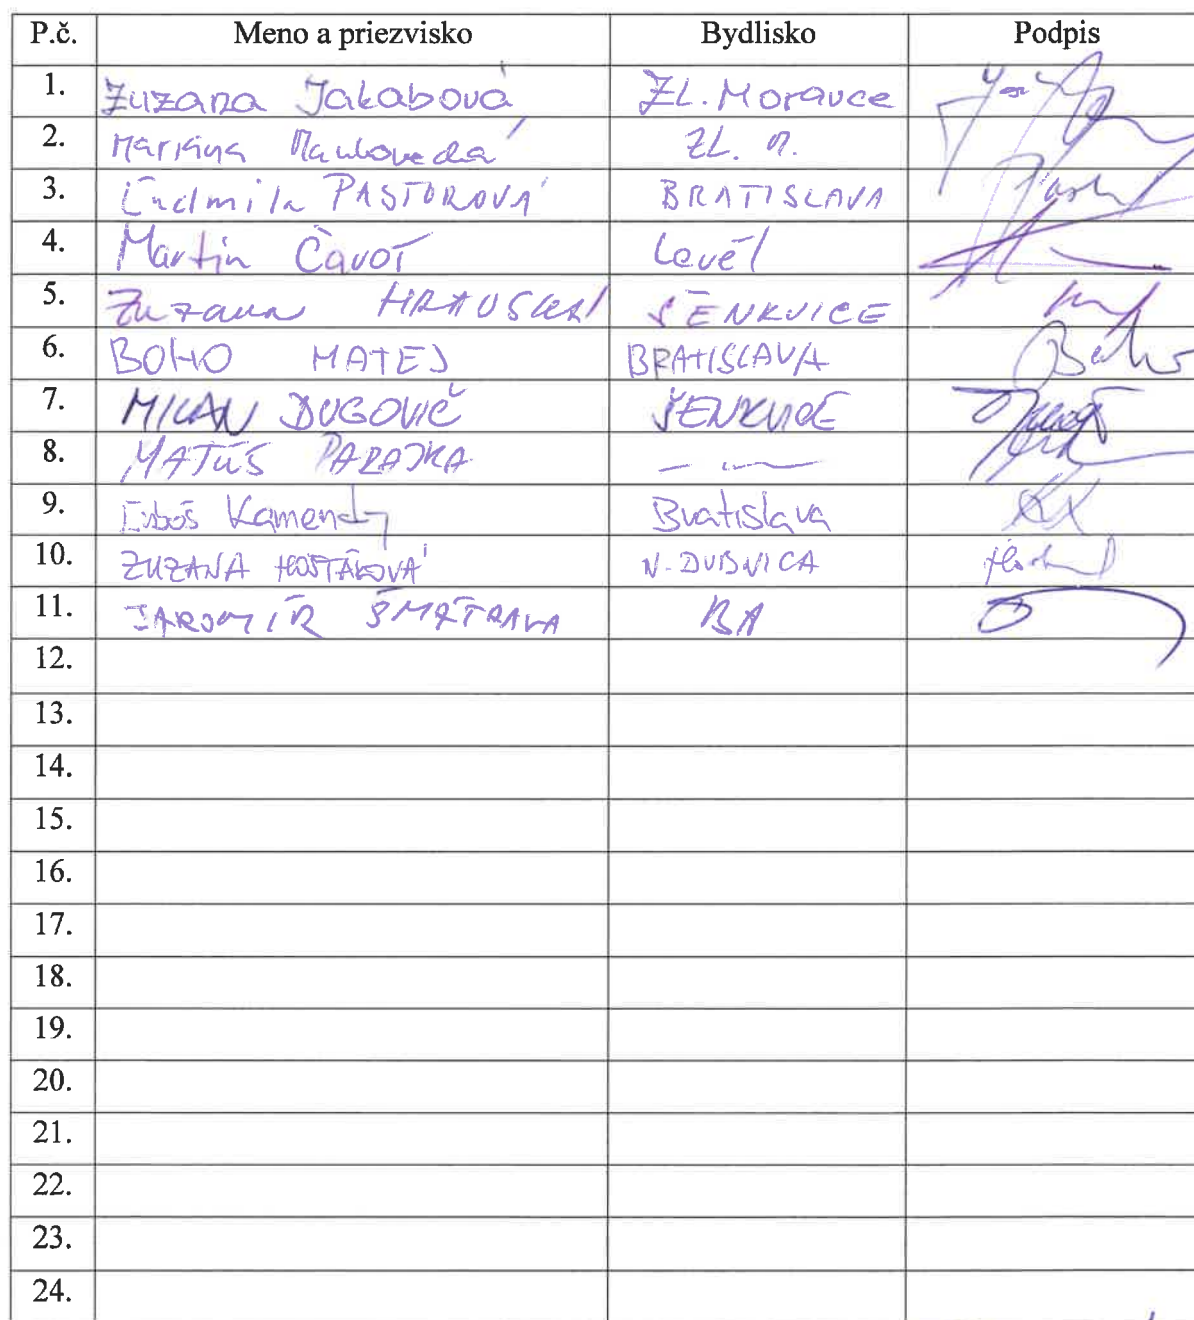 P.č. Meno a priezvisko Bydlisko Podpis
1. Zuzana Jakabová Zl. Moravce
2. Mariana Zl. M.
3. Ľudmila PASTOROVÁ BRATISLAVA
4. Martin Čavoj
5. Zuzana ŠENKVICE
6. BOHO MATEJ BRATISLAVA
7. MILAN DUGOVIČ ŠENKVICE
8. MATÚŠ PARAJKA
9. Ľuboš Kamendy Bratislava
10. ZUZANA HOŠŤÁKOVÁ N. DUBNICA
11. JAROMÍR ŠMATRALA BA
12.
13.
14.
15.
16.
17.
18.
19.
20.
21.
22.
23.
24.